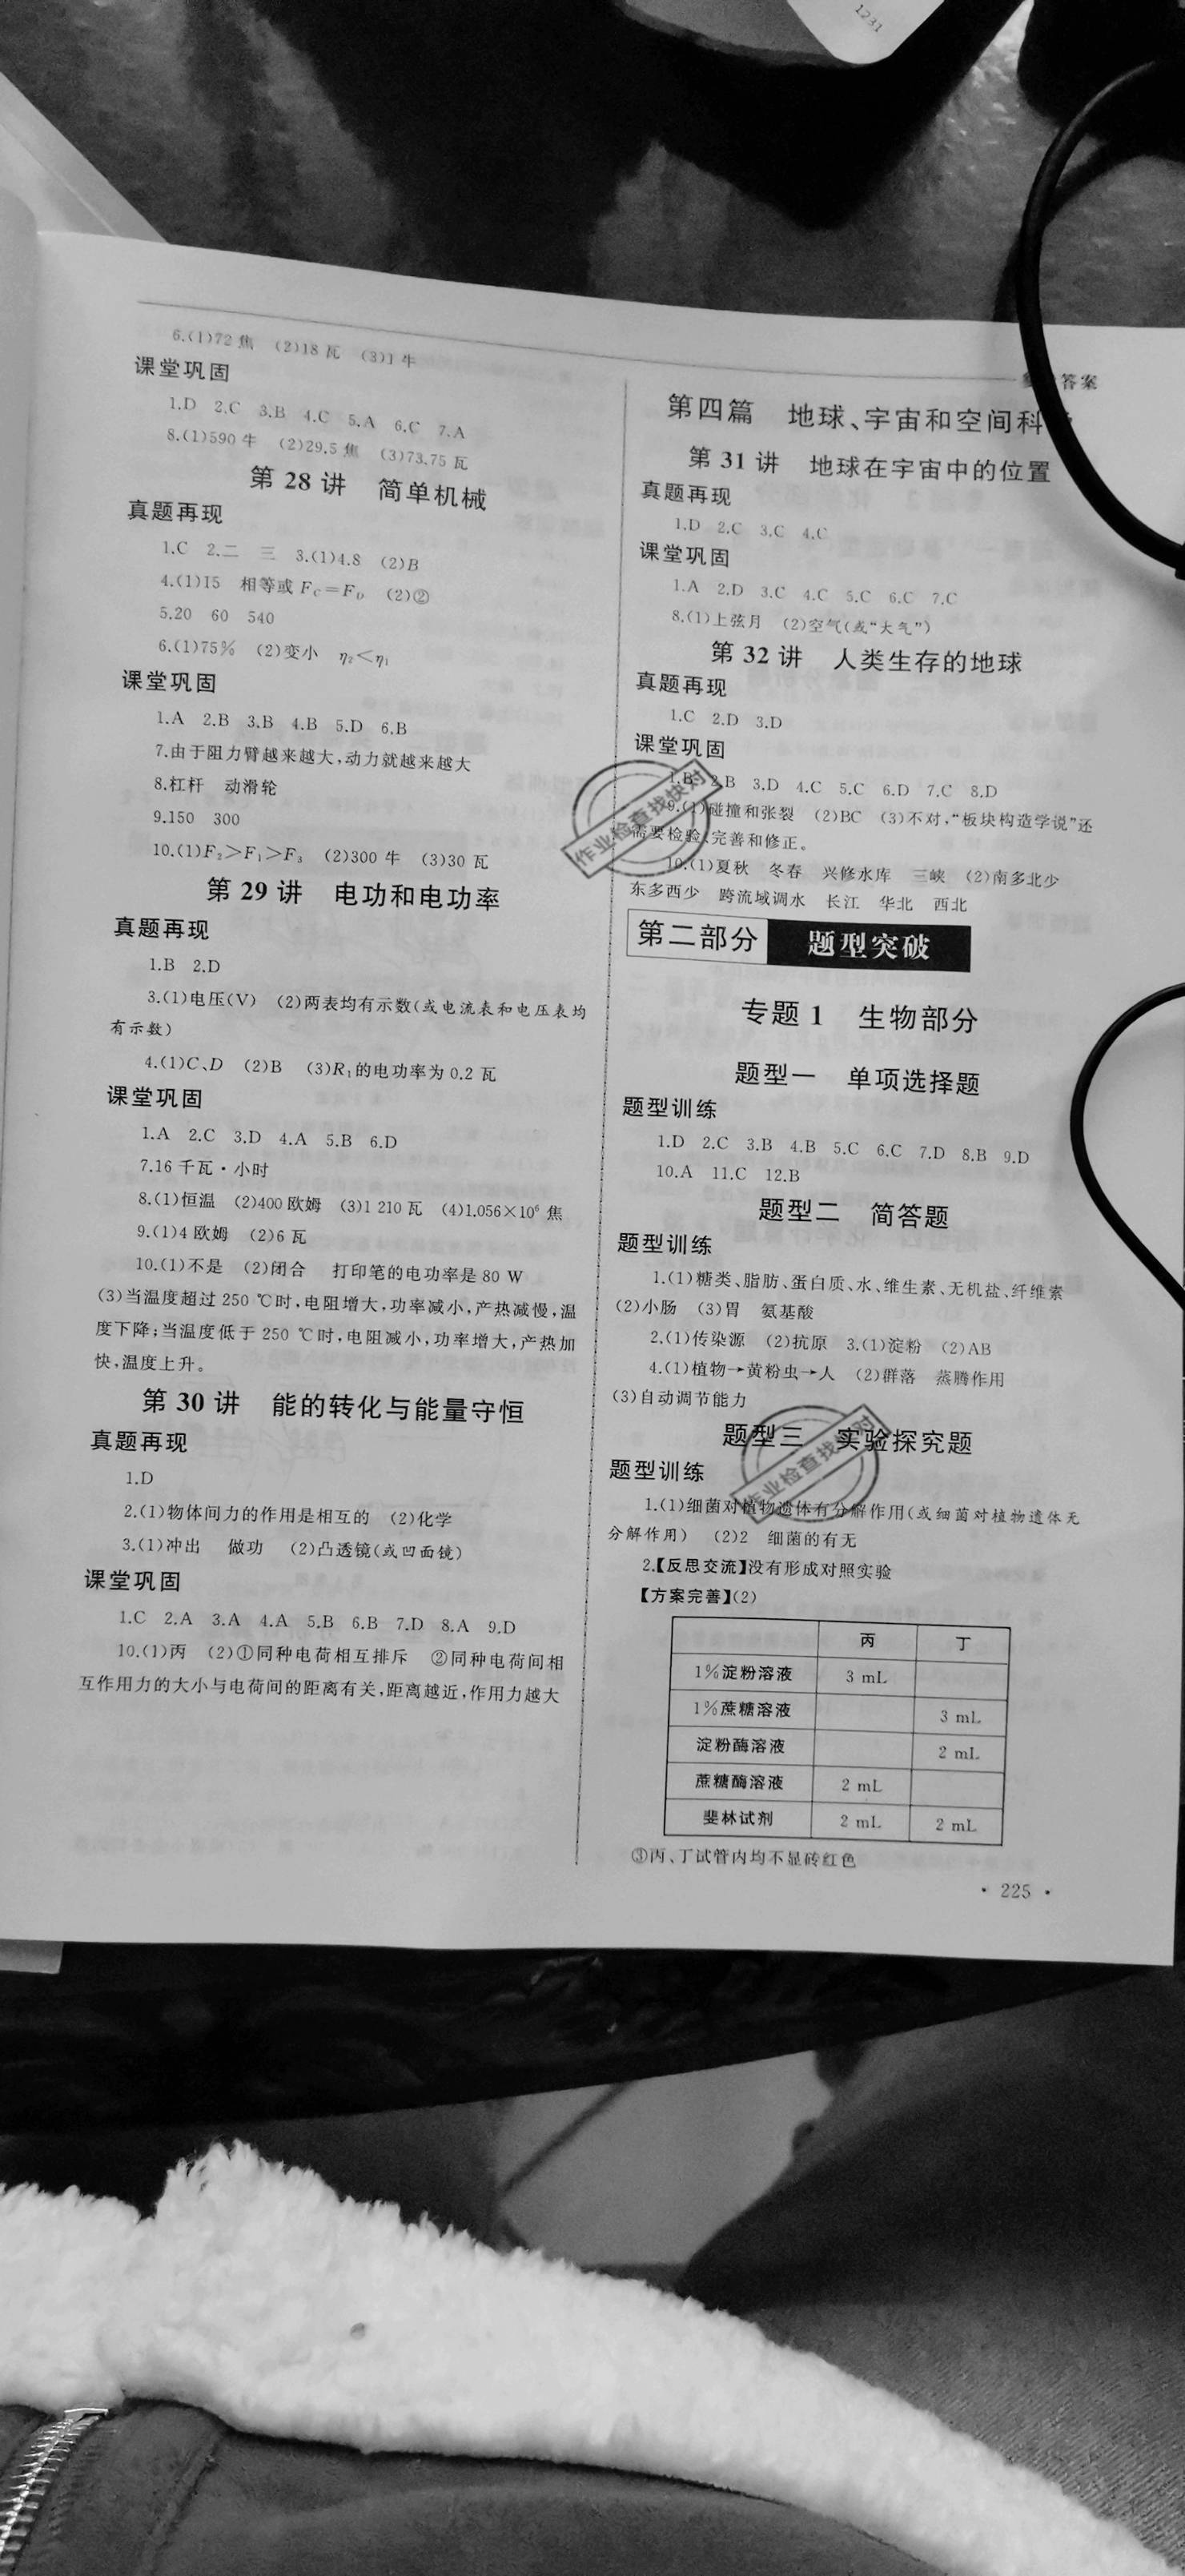 1231
答案
6.(1)72 焦 (2)18 瓦 (3)1 牛
课堂巩固
1.D 2.C 3.B 4.C 5.A 6.C 7.A
8.(1)590 牛 (2)29.5 焦 (3)73.75 瓦
第 28 讲 简单机械
真题再现
1.C 2.二 三 3.(1)4.8 (2)B
4.(1)15 相等或 F_C=F_D (2)②
5.20 60 540
6.(1)75% (2)变小 η₂<η₁
课堂巩固
1.A 2.B 3.B 4.B 5.D 6.B
7.由于阻力臂越来越大,动力就越来越大
8.杠杆 动滑轮
9.150 300
10.(1)F₂>F₁>F₃ (2)300 牛 (3)30 瓦
第 29 讲 电功和电功率
真题再现
1.B 2.D
3.(1)电压(V) (2)两表均有示数(或电流表和电压表均
有示数)
4.(1)C、D (2)B (3)R₁的电功率为 0.2 瓦
课堂巩固
1.A 2.C 3.D 4.A 5.B 6.D
7.16 千瓦·小时
8.(1)恒温 (2)400 欧姆 (3)1 210 瓦 (4)1.056×10⁶ 焦
9.(1)4 欧姆 (2)6 瓦
10.(1)不是 (2)闭合 打印笔的电功率是 80 W
(3)当温度超过 250 ℃时,电阻增大,功率减小,产热减慢,温
度下降;当温度低于 250 ℃时,电阻减小,功率增大,产热加
快,温度上升。
第 30 讲 能的转化与能量守恒
真题再现
1.D
2.(1)物体间力的作用是相互的 (2)化学
3.(1)冲出 做功 (2)凸透镜(或凹面镜)
课堂巩固
1.C 2.A 3.A 4.A 5.B 6.B 7.D 8.A 9.D
10.(1)丙 (2)①同种电荷相互排斥 ②同种电荷间相
互作用力的大小与电荷间的距离有关,距离越近,作用力越大
第四篇 地球、宇宙和空间科
第 31 讲 地球在宇宙中的位置
真题再现
1.D 2.C 3.C 4.C
课堂巩固
1.A 2.D 3.C 4.C 5.C 6.C 7.C
8.(1)上弦月 (2)空气(或“大气”)
第 32 讲 人类生存的地球
真题再现
1.C 2.D 3.D
课堂巩固
1.B 2.B 3.D 4.C 5.C 6.D 7.C 8.D
9.(1)碰撞和张裂 (2)BC (3)不对,“板块构造学说”还
需要检验、完善和修正。
作业检查找快对
10.(1)夏秋 冬春 兴修水库 三峡 (2)南多北少
东多西少 跨流域调水 长江 华北 西北
第二部分 题型突破
专题 1 生物部分
题型一 单项选择题
题型训练
1.D 2.C 3.B 4.B 5.C 6.C 7.D 8.B 9.D
10.A 11.C 12.B
题型二 简答题
题型训练
1.(1)糖类、脂肪、蛋白质、水、维生素、无机盐、纤维素
(2)小肠 (3)胃 氨基酸
2.(1)传染源 (2)抗原 3.(1)淀粉 (2)AB
4.(1)植物→黄粉虫→人 (2)群落 蒸腾作用
(3)自动调节能力
题型三 实验探究题
作业检查找快对
题型训练
1.(1)细菌对植物遗体有分解作用(或细菌对植物遗体无
分解作用) (2)2 细菌的有无
2.【反思交流】没有形成对照实验
【方案完善】(2)
丙 丁
1%淀粉溶液 3 mL
1%蔗糖溶液 3 mL
淀粉酶溶液 2 mL
蔗糖酶溶液 2 mL
斐林试剂 2 mL 2 mL
③丙、丁试管内均不显砖红色
· 225 ·